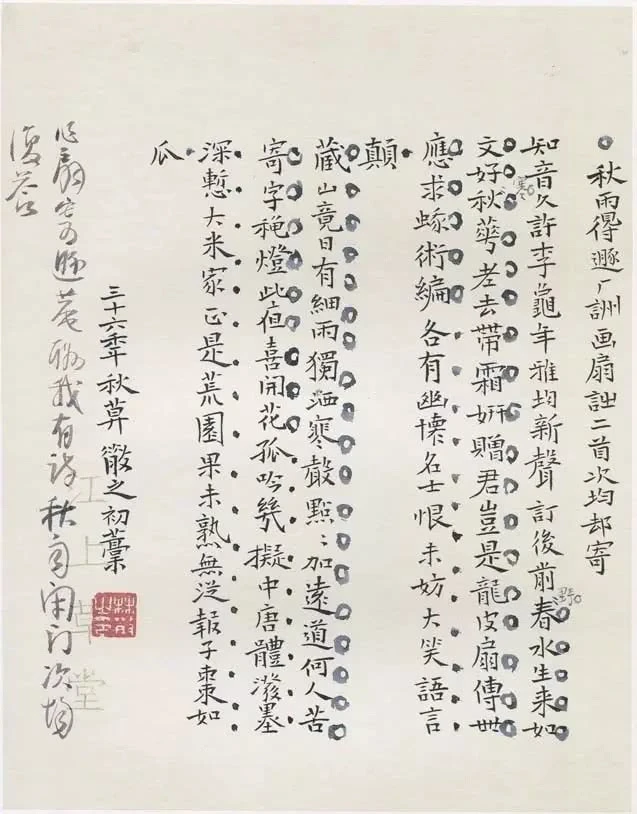 秋雨得遯厂詶画扇詩二首次均却寄
知音久許李龜年雅均新聲訂後前春水生来如
野
文好秋蕐老去帶霜妍贈君豈是龍皮扇傳世
寒
應求術編各有幽懷名士恨未妨大笑語言
顛
蔵山竟日有細雨獨洒寒聲點〻加遠道何人苦
寄字穐燈此夜喜開花孤吟幾擬中唐體潑墨
深慙大米家正是荒園果未熟無從報子棗如
瓜
三十六年秋之初藁
扇寄遯菴酬我有詩秋雨閉门次均
復答
江上草堂